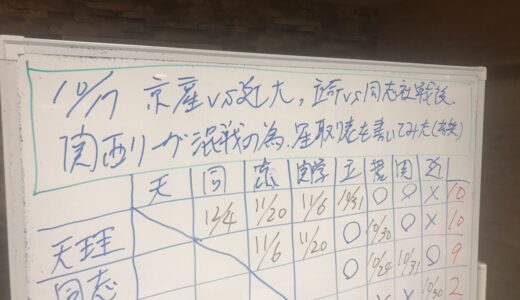 10/17 京産vs近大,立命vs同志社戦後.
関西リーグが混戦の為.星取表を書いてみた
天 同 京産 関学 立 摂 関 近
天理 12/4 11/20 11/6 10/31 〇 〇 × 10
同志 11/6 11/20 〇 10/30 〇 × 10
〇 10/24 10/31 〇 9
× 10/30 2